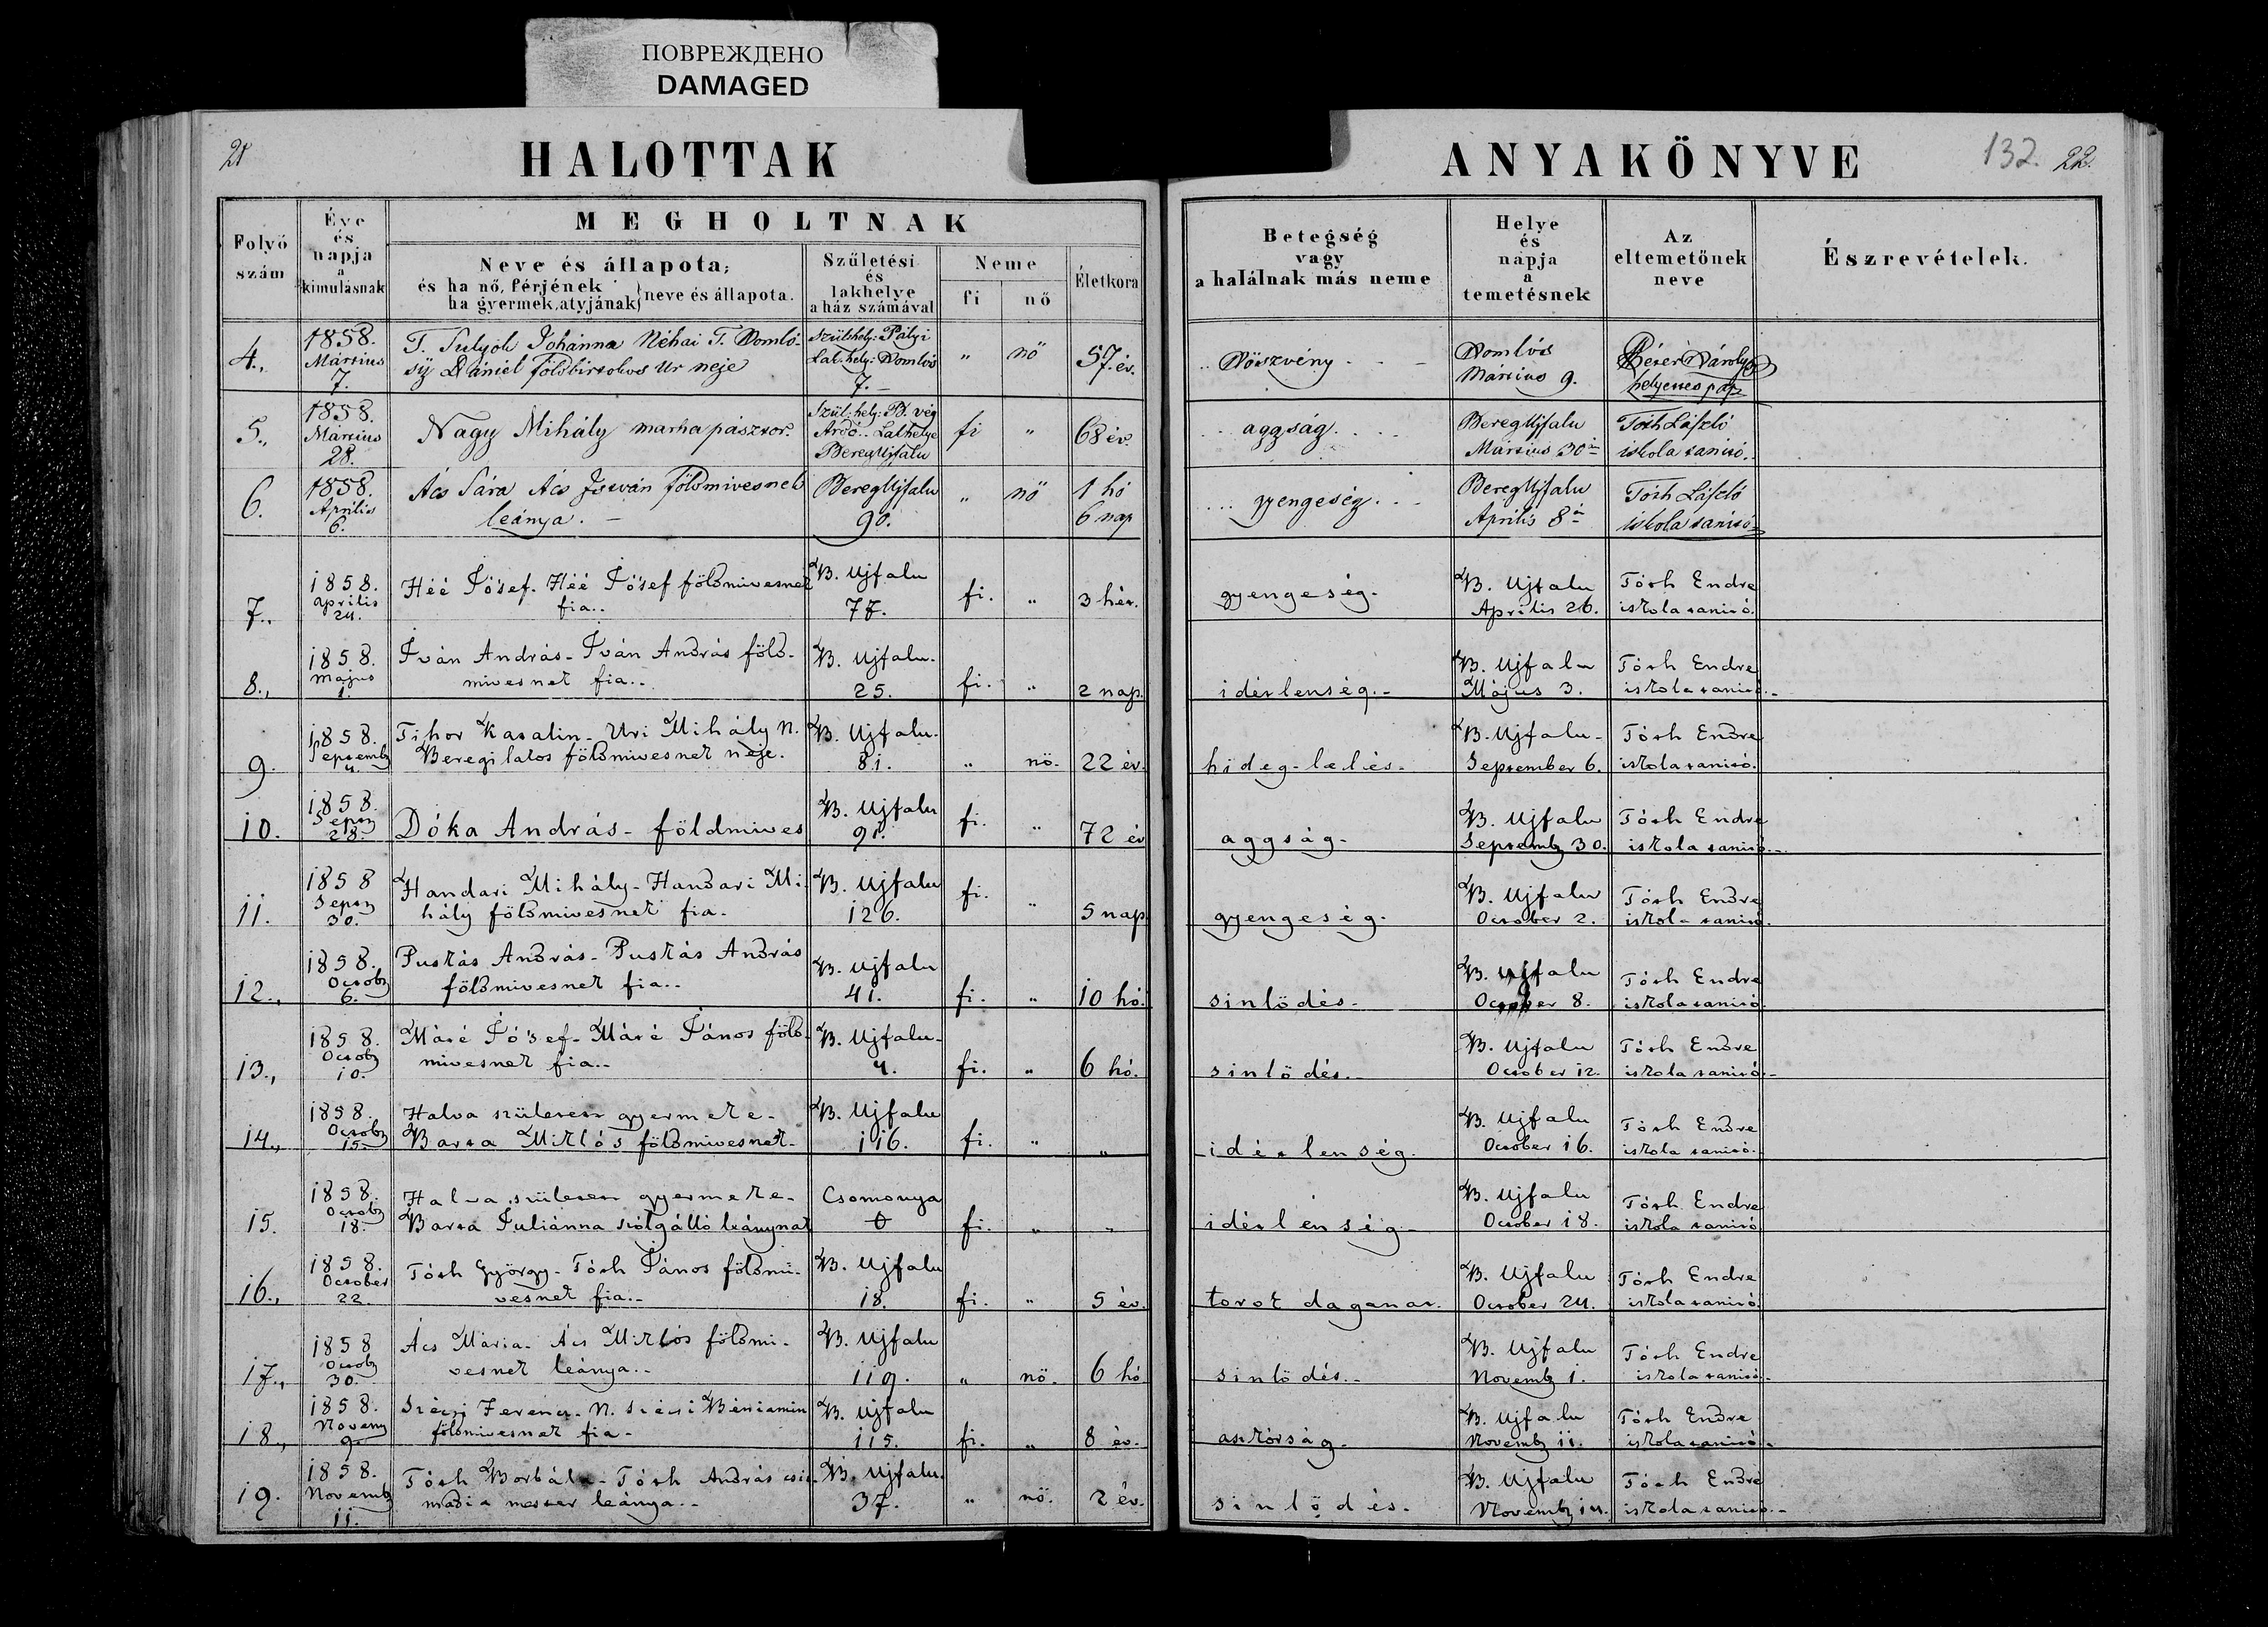 ПОВРЕЖДЕНО
DAMAGED
21
HALOTTAK
ANYAKÖNYVE
132. 22.
Folyó szám
Éve és napja a kimulásnak
MEGHOLTNAK
Neve és állapota;
és ha nő, férjének
ha gyermek, atyjának } neve és állapota.
Születési és lakhelye a ház számával
Neme
fi
nő
Életkora
Betegség vagy a halálnak más neme
Helye és napja a temetésnek
Az eltemetőnek neve
Észrevételek.
4., 1858. Mártius 7.
Johanna Néhai T. Komló-
sÿ Dániel földbirtokos Ur neje
Szül.hely: Pályi Lak.hely: Komlós 7.
" nő 57. év.
Köszvény
Komlós Mártius 9.
Károly helyettes pap
5., 1858. Mártius 28.
Nagy Mihály marha pásztor.
Szül: hely: B. vég Ardó. Lakhelye BeregUjfalu
fi " 68 év.
aggság
BeregUjfalu Mártius 30án
Tóth László iskola tanító.
6. 1858. Április 6.
Ács Sára Ács István földmivesnek
leánya.
BeregUjfalu 90.
" nő 1 hó 6 nap
gyengeség
BeregUjfalu Április 8án
Tóth László iskola tanitó
7. 1858. április 24.
Héé Jósef. Héé Jósef földmivesnek
fia..
B. Ujfalu 77.
fi. " 3 hét.
gyengeség.
B. Ujfalu Április 26.
Tóth Endre iskola tanitó.
8., 1858. május 1.
Iván András - Iván András föld-
mivesnek fia..
B. Ujfalu. 25.
fi. " 2 nap.
idétlenség.-
B. Ujfalu Május 3.
Tóth Endre iskola tanitó.-
9. 1858. Septemb 4.
Tihor Katalin - Uri Mihály N.
Beregi lakos földmivesnek neje.
B. Ujfalu. 81.
" nö. 22 év.
hideg-lelés.
B. Ujfalu- September 6.
Tóth Endre iskola tanitó.
10. 1858. Sept 28.
Dóka András - földmives
B. Ujfalu 91.
fi. " 72 év
aggság-
B. Ujfalu Septemb 30.
Tóth Endre iskola tanitó.-
11. 1858 Sept 30.
Handari Mihály - Handari Mi-
hály földmivesnek fia-
B. Ujfalu 126.
fi. " 5 nap
gyengeség.
B. Ujfalu October 2.
Tóth Endre iskola tanitó.
12., 1858. Octob 6.
Puskás András - Puskás András
földmivesnek fia..
B. Ujfalu 41.
fi. " 10 hó.
sinlödés-
B. Ujfalu October 8.
Tóth Endre iskola tanitó.
13., 1858. Octob 10.
Máté Jó'sef - Máté János föld-
mivesnek fia..
B. Ujfalu- 4.
fi. " 6 hó.
sinlödés.-
B. Ujfalu October 12.
Tóth Endre iskola tanitó.-
14., 1858. Octob 15.
Halva született gyermeke-
Barta Miklós földmivesnek-
B. Ujfalu 116.
fi. " "
idétlenség.
B. Ujfalu October 16.
Tóth Endre iskola tanitó.
15. 1858. Octob 18.
Halva született gyermeke-
Barta Juliánna szolgálló leánynak
Csomonya 0
fi. " "
idétlenség-
B. Ujfalu October 18.
Tóth Endre iskola tanitó
16., 1858. October 22.
Tóth György - Tóth János földmi-
vesnek fia.-
B. Ujfalu 18.
fi. " 5 év.
torok daganat.
B. Ujfalu October 24.
Tóth Endre iskola tanitó.
17., 1858 Octob 30.
Ács Mária - Ács Miklós földmi-
vesnek leánya.-
B. Ujfalu 119.
" nö. 6 hó
sinlödés.-
B. Ujfalu Novemb 1.
Tóth Endre iskola tanitó.
18., 1858. Novem 9.
Szécsi Ferencz - N. Szécsi Béniamin
földmivesnek fia-
B. Ujfalu 115.
fi. " 8 év-
aszkórság-
B. Ujfalu Novemb 11.
Tóth Endre iskola tanitó.
19. 1858. Novemb 11.
Tóth Borbála - Tóth András csiz-
madia mester leánya.-
B. Ujfalu. 37.
" nö. 2 év.
sinlődés.
B. Ujfalu Novemb 14.
Tóth Endre iskola tanitó.-